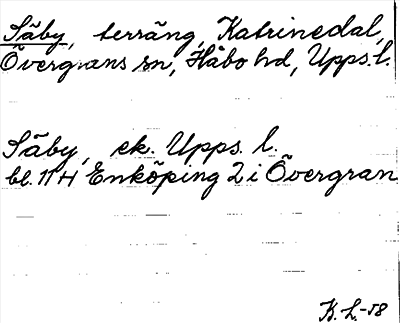 Säby, terräng, Katrinedal,
Övergrans sn, Håbo hd, Upps. l.
Säby, ek. Upps. l.
bl. 114 Enköping 2 i Övergran
K. L. -58